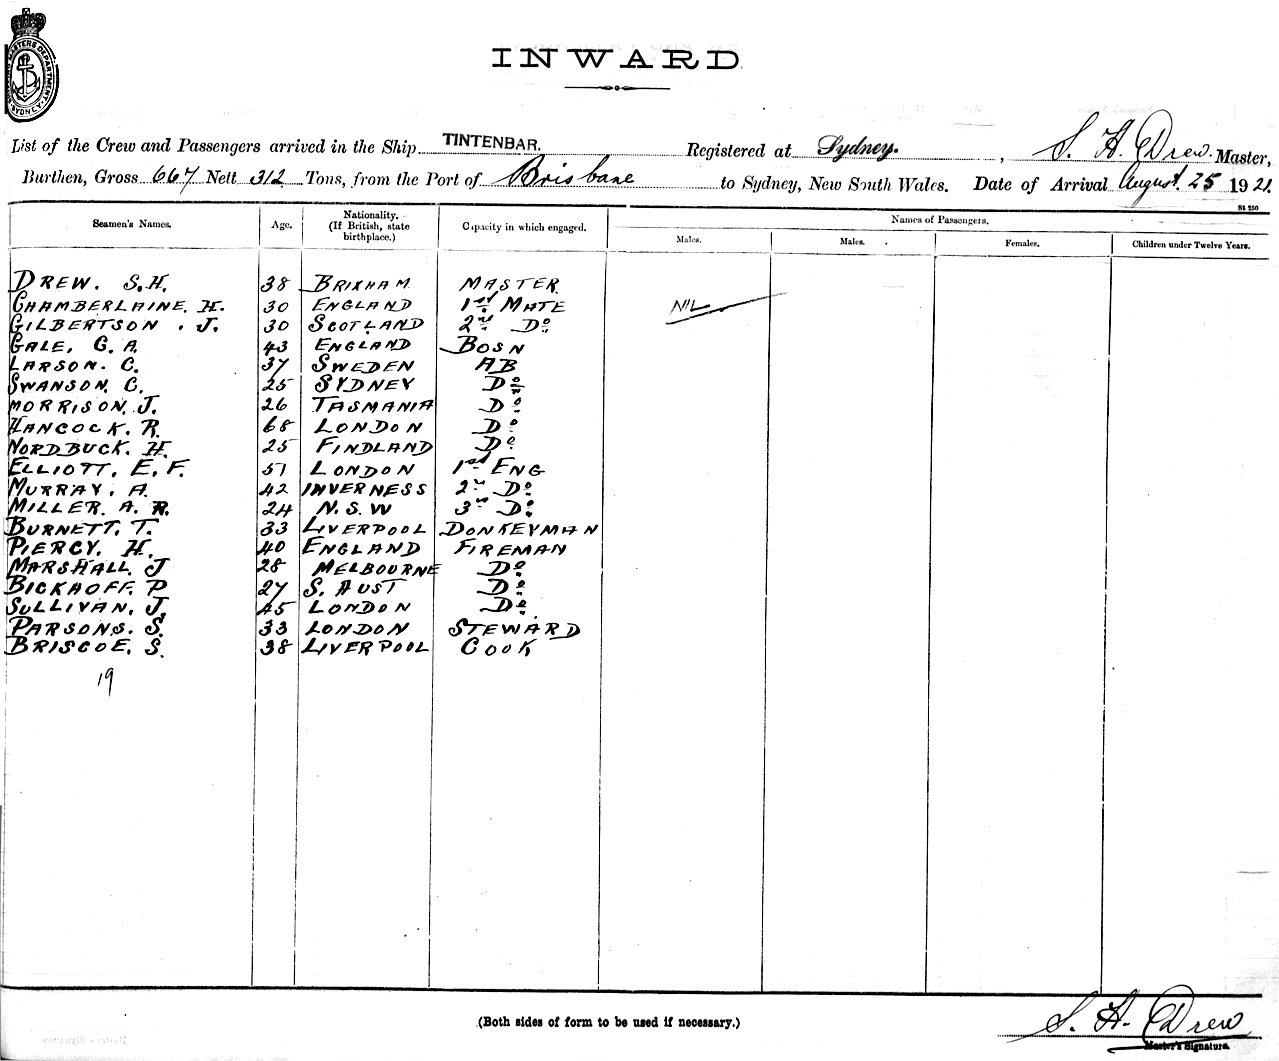 MASTERS DEPARTMENT
SYDNEY
INWARD
List of the Crew and Passengers arrived in the Ship TINTENBAR. Registered at Sydney. , S. H. Drew. Master,
Burthen, Gross 667 Nett 312 Tons, from the Port of Brisbane to Sydney, New South Wales. Date of Arrival August 25 1921.
S4 250
Seamen's Names. Age. Nationality. (If British, state birthplace.) Capacity in which engaged. Names of Passengers.
Males. Males. Females. Children under Twelve Years.
DREW. S.H. 38 BRIXHAM MASTER
CHAMBERLAINE. H. 30 ENGLAND 1st MATE NIL
GILBERTSON. J. 30 SCOTLAND 2nd Do
GALE, G. A. 43 ENGLAND BOSN
LARSON. C. 37 SWEDEN AB
SWANSON. C. 25 SYDNEY Do
MORRISON. J. 26 TASMANIA Do
HANCOCK. R. 68 LONDON Do
NORDBUCK. H. 25 FINDLAND Do
ELLIOTT. E. F. 51 LONDON 1st ENG
MURRAY. A. 42 INVERNESS 2nd Do
MILLER. A. R. 24 N.S.W 3rd Do
BURNETT. T. 33 LIVERPOOL DONKEYMAN
PIERCY. H. 40 ENGLAND FIREMAN
MARSHALL. J 28 MELBOURNE Do
BICKHOFF. P 27 S. AUST Do
SULLIVAN. J. 45 LONDON Do
PARSONS. S. 33 LONDON STEWARD
BRISCOE. S. 38 LIVERPOOL COOK
19
(Both sides of form to be used if necessary.)
S. H. Drew
Master's Signature.